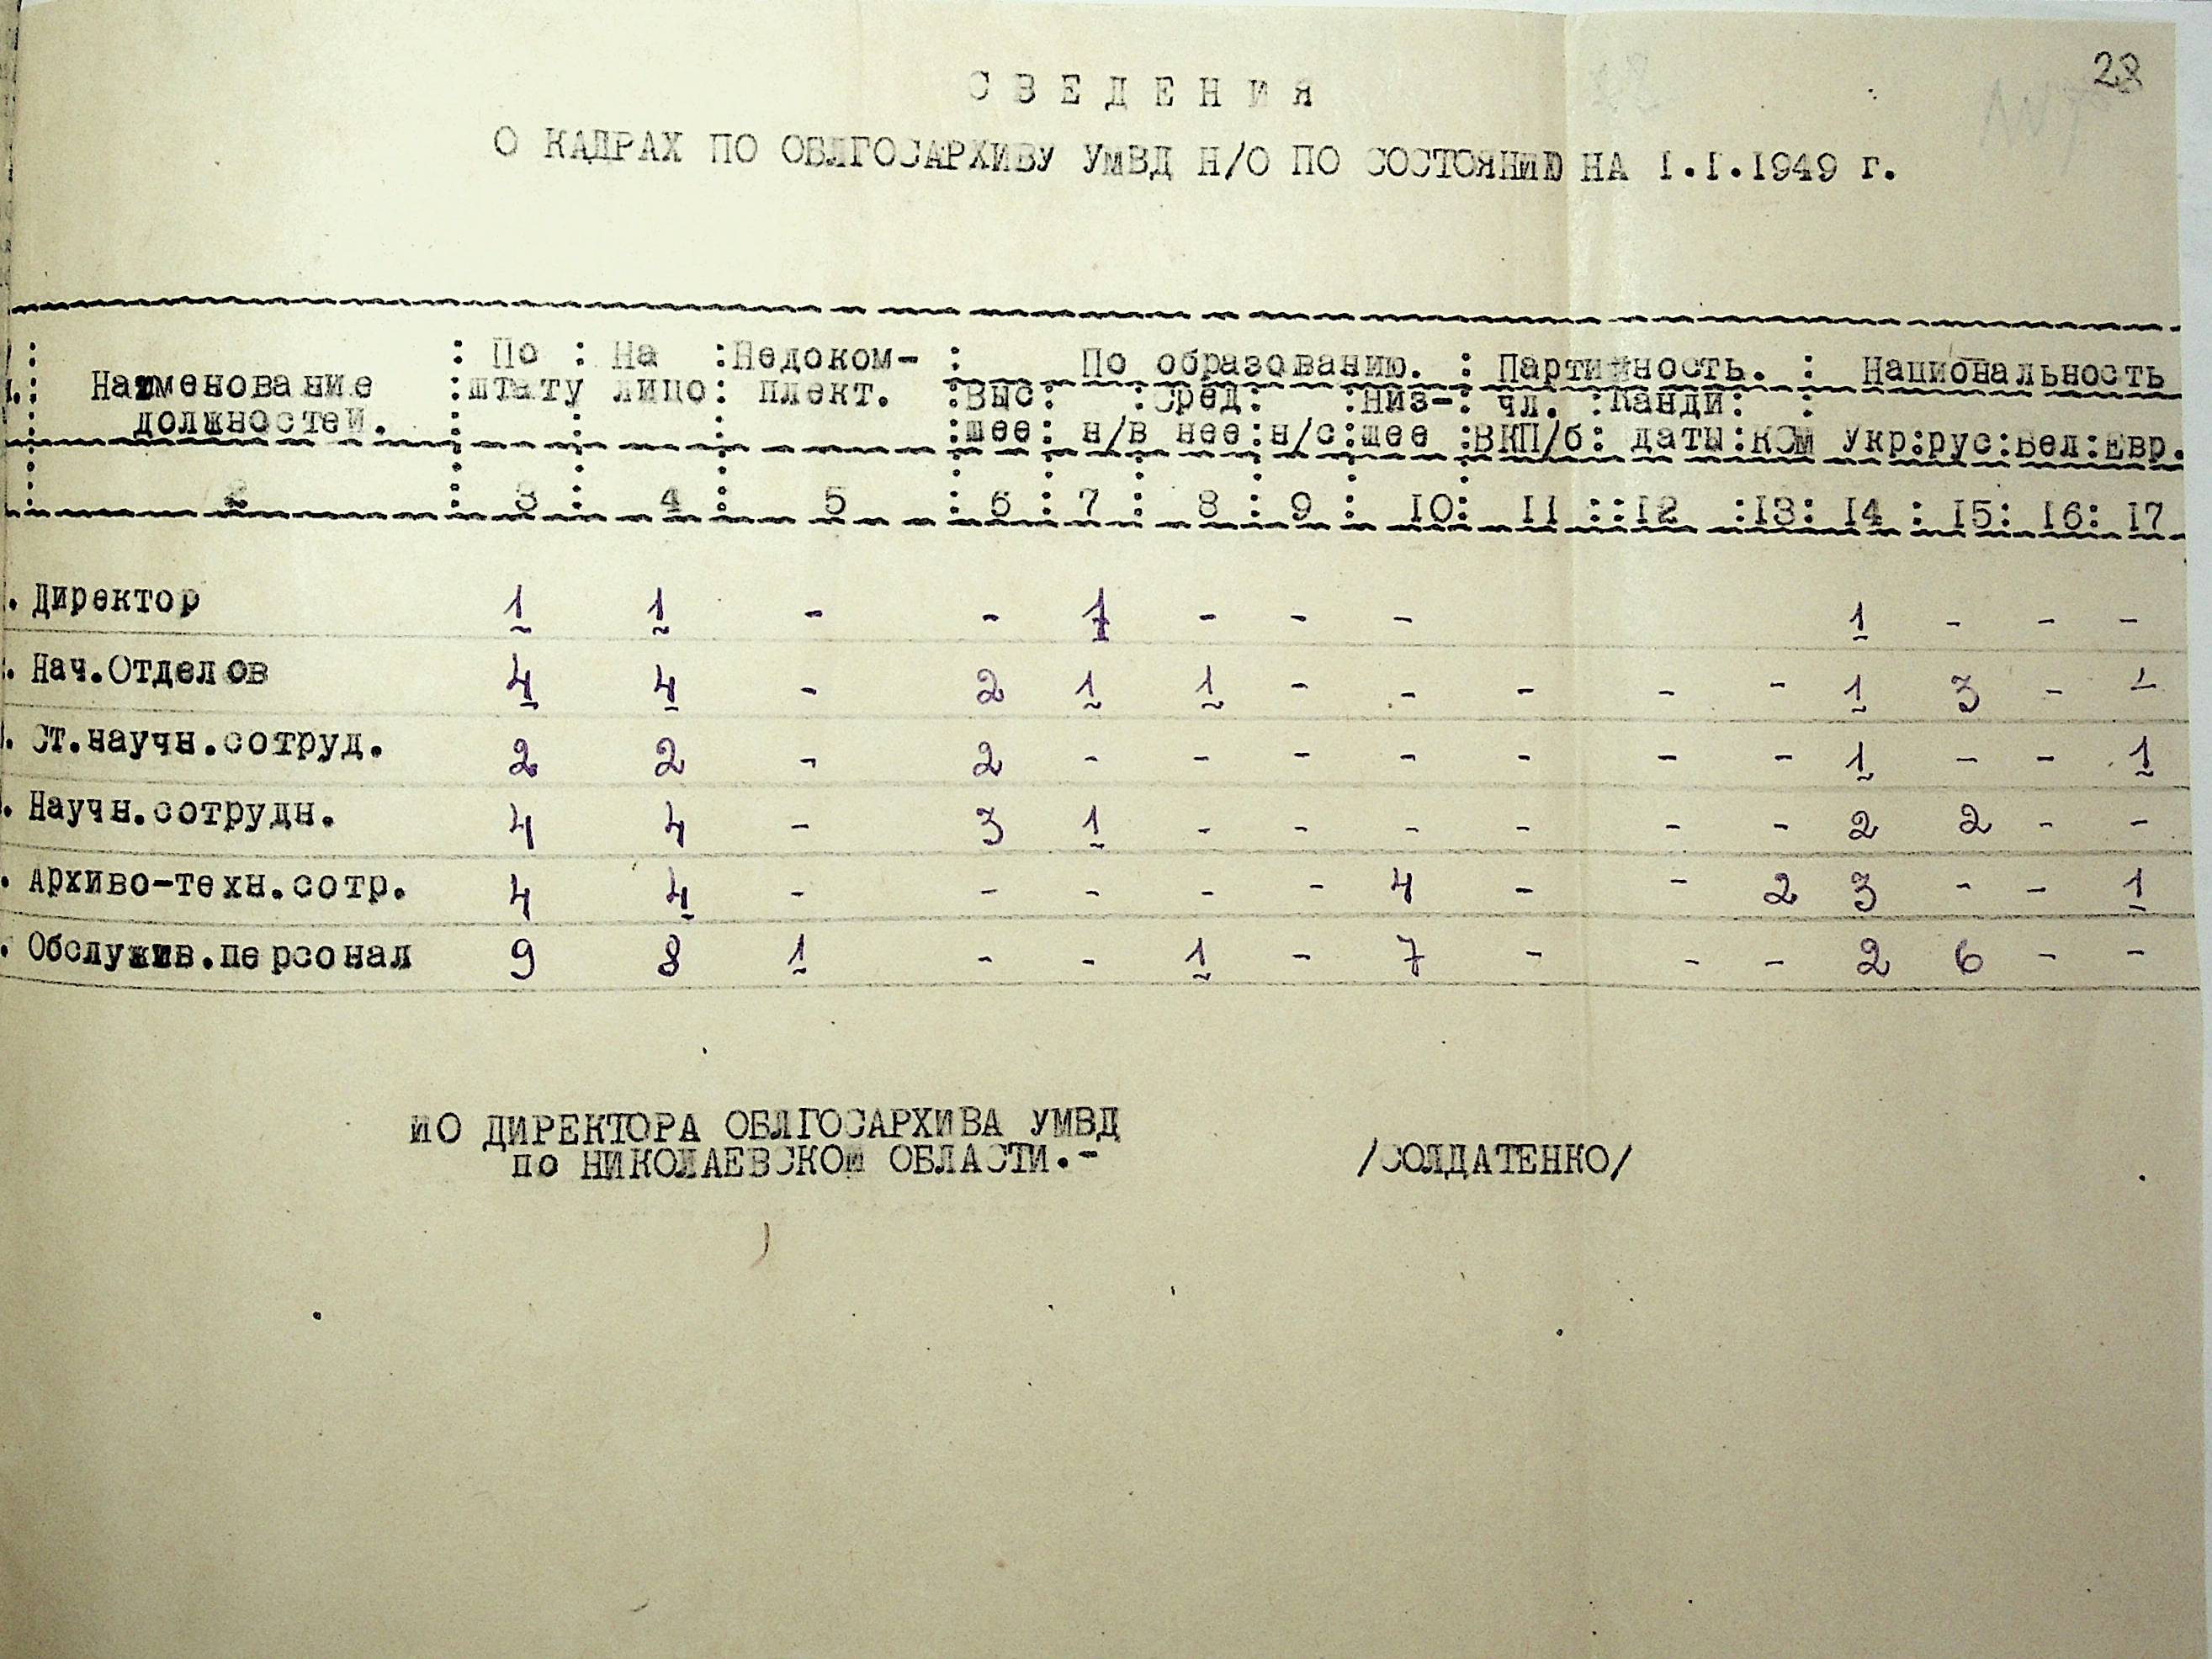 28
СВЕДЕНИЯ
О КАДРАХ ПО ОБЛГОСАРХИВУ УМВД Н/О ПО СОСТОЯНИЮ НА I.I.1949 г.
Наименование должностей. : По штату : На лицо : Недоком-плект. : По образованию. : Партийность. : Национальность
Высшее : н/в : Среднее : н/с : Низ-шее : чл. ВКП/б : Канди даты : КСМ : Укр : рус : Бел : Евр.
2 : 3 : 4 : 5 : 6 : 7 : 8 : 9 : 10 : 11 :: 12 : 13 : 14 : 15 : 16 : 17
. Директор 1 1 - - 1 - - - 1 - - -
. Нач.Отделов 4 4 - 2 1 1 - - - - - 1 3 - -
. Ст.научн.сотруд. 2 2 - 2 - - - - - - - 1 - - 1
. Научн.сотрудн. 4 4 - 3 1 - - - - - - 2 2 - -
. Архиво-техн.сотр. 4 4 - - - - - 4 - - 2 3 - - 1
. Обслужив.персонал 9 8 1 - - 1 - 7 - - - 2 6 - -
ИО ДИРЕКТОРА ОБЛГОСАРХИВА УМВД
по НИКОЛАЕВСКОЙ ОБЛАСТИ.- /СОЛДАТЕНКО/